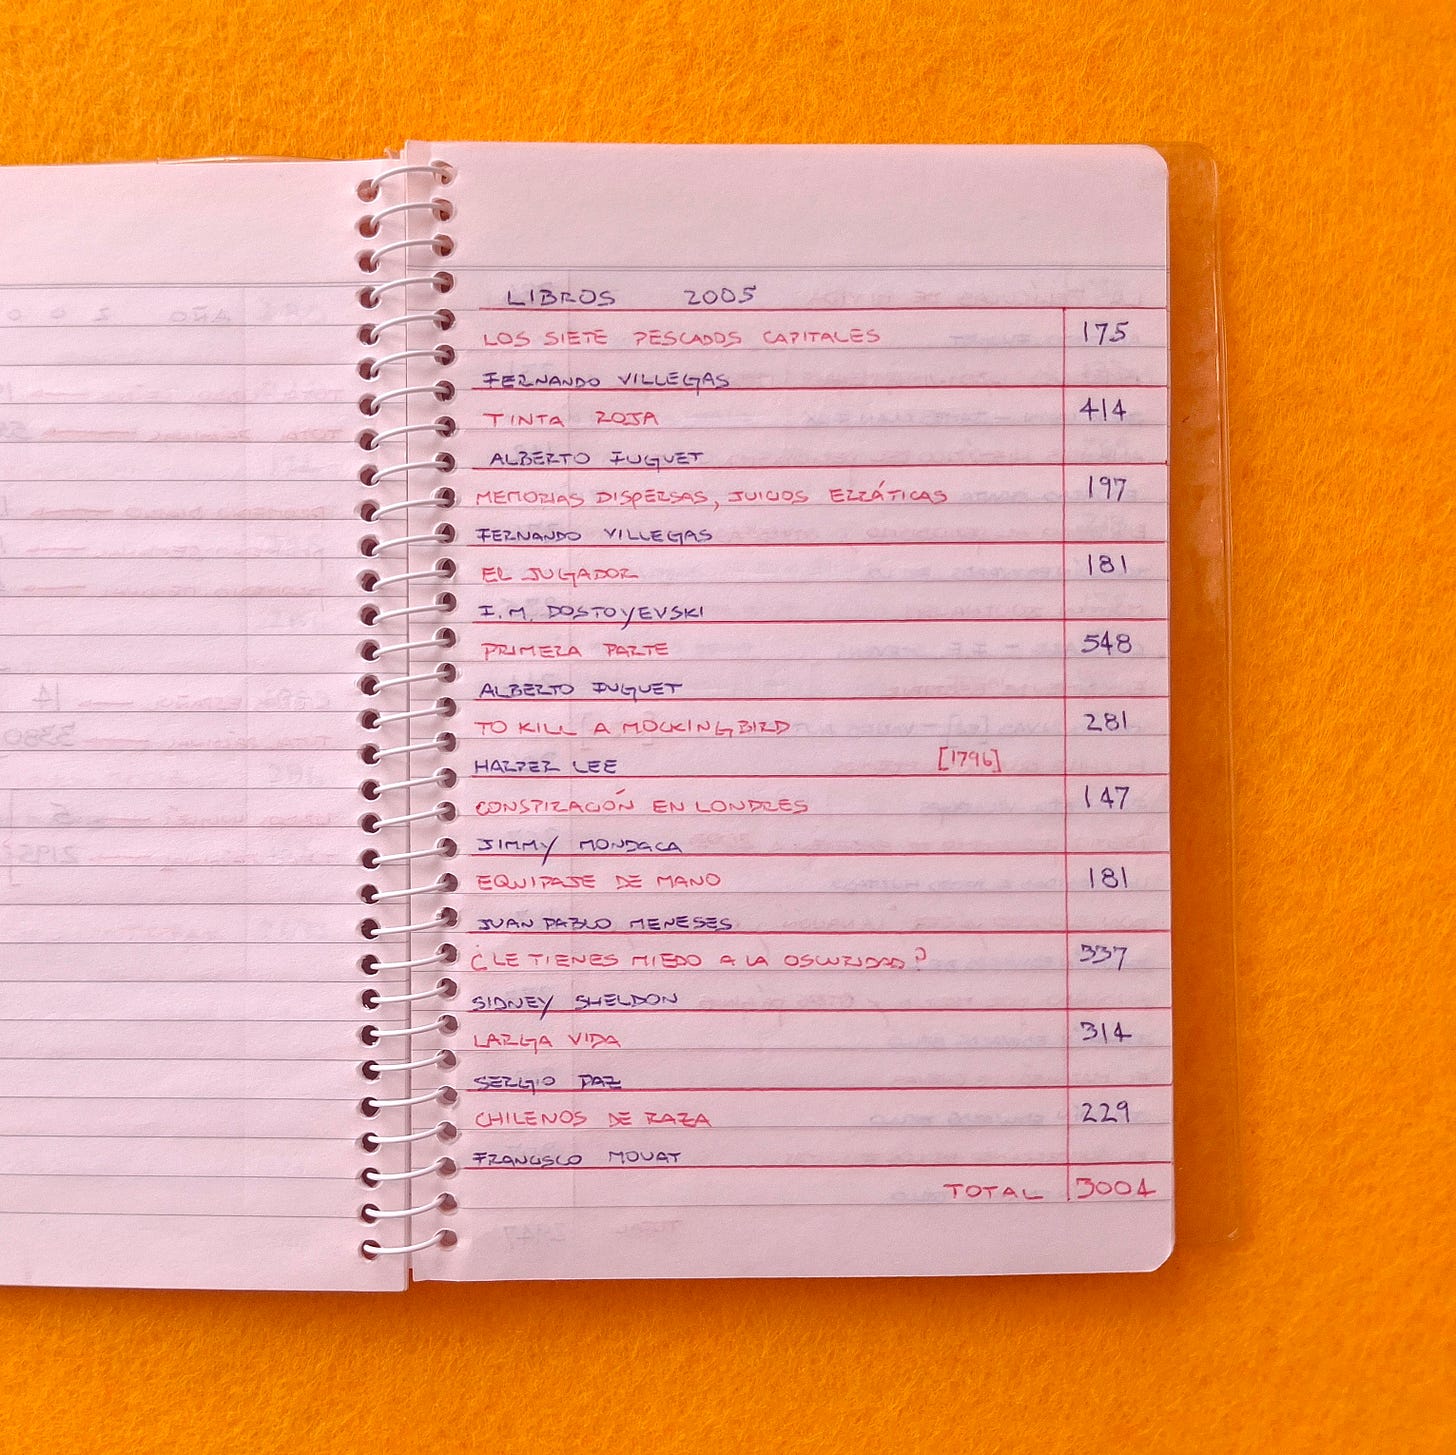 LIBROS 2005
LOS SIETE PESCADOS CAPITALES 175
FERNANDO VILLEGAS
TINTA ROJA 414
ALBERTO FUGUET
MEMORIAS DISPERSAS, JUICIOS ERRÁTICAS 197
FERNANDO VILLEGAS
EL JUGADOR 181
F.M. DOSTOYEVSKI
PRIMERA PARTE 548
ALBERTO FUGUET
TO KILL A MOCKINGBIRD 281
HARPER LEE [1796]
CONSPIRACIÓN EN LONDRES 147
JIMMY MONDACA
EQUIPAJE DE MANO 181
JUAN PABLO MENESES
¿LE TIENES MIEDO A LA OSCURIDAD? 337
SIDNEY SHELDON
LARGA VIDA 314
SERGIO PAZ
CHILENOS DE RAZA 229
FRANCISCO MOUAT
TOTAL 3004